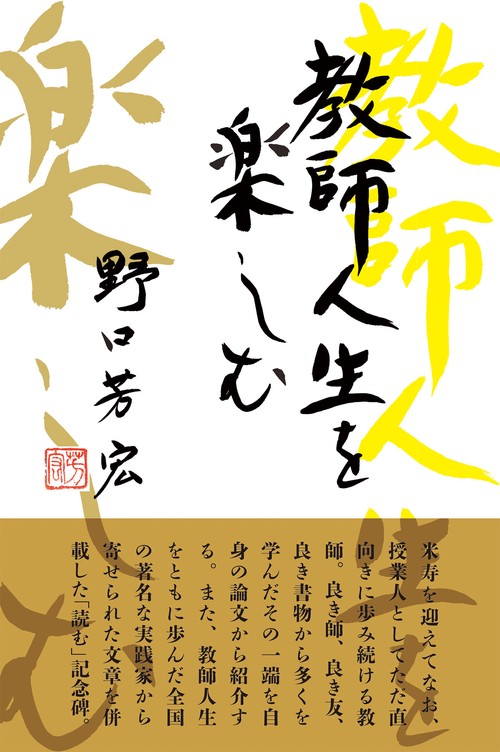 教師人生を
楽しむ
野口芳宏
芳宏
教師人生を
楽しむ
米寿を迎えてなお、
授業人としてただ直
向きに歩み続ける教
師。良き師、良き友、
良き書物から多くを
学んだその一端を自
身の論文から紹介す
る。また、教師人生
をともに歩んだ全国
の著名な実践家から
寄せられた文章を併
載した「読む」記念碑。